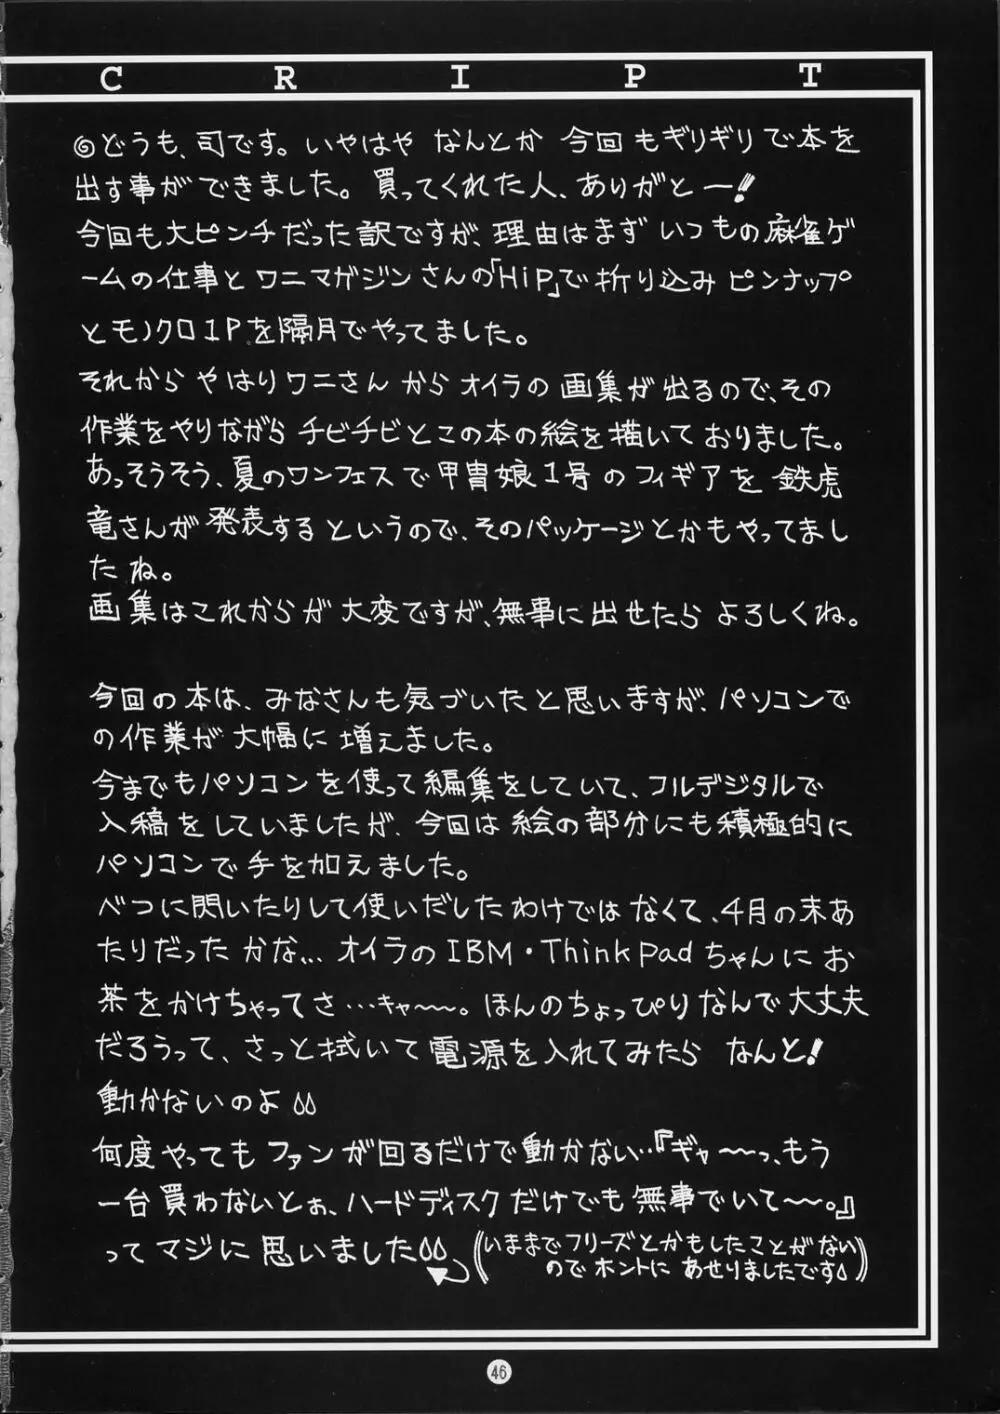 CRIPT
どうも、司です。いやはや なんとか 今回もギリギリで本を
出す事ができました。買ってくれた人、ありがとー!!
今回も大ピンチだった訳ですが、理由はまず いつもの麻雀ゲ
ームの仕事と ワニマガジンさんの「HiP」で折り込みピンナップ
とモノクロ1Pを隔月でやってました。
それから やはりワニさん からオイラの画集が出るので、その
作業をやりながら チビチビとこの本の絵を描いておりました。
あっそうそう、夏のワンフェスで甲冑娘1号のフィギアを鉄虎
竜さんが発表するというので、そのパッケージとかもやってまし
たね。
画集はこれからが大変ですが、無事に出せたらよろしくね。
今回の本は、みなさんも気づいたと思いますが、パソコンで
の作業が大幅に増えました。
今までもパソコンを使って編集をしていて、フルデジタルで
入稿をしていましたが、今回は絵の部分にも積極的に
パソコンで手を加えました。
べつに閃いたりして使いだしたわけではなくて、4月の末あ
たりだったかな… オイラのIBM・ThinkPadちゃんにお
茶をかけちゃってさ…キャ〜〜。ほんのちょっぴりなんで大丈夫
だろうって、さっと拭いて電源を入れてみたら なんと!
動かないのよ
何度やってもファンが回るだけで動かない…『ギャ〜〜っ、もう
一台買わないとぉ、ハードディスクだけでも無事でいて〜〜。』
ってマジに思いました
(いままでフリーズとかもしたことがない
のでホントにあせりましたです)
46